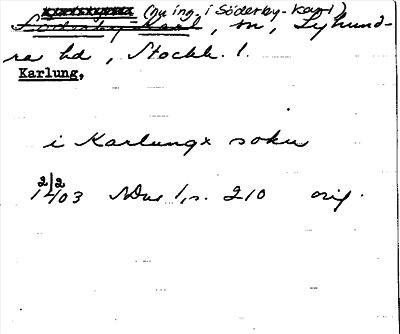 (nu ing. i Söderby-Karl)
Söderby-Karl, sn, Lyhund-
ra hd, Stockh. l.
Karlung,
i Karlungx sokn
2/2
1403 NDus 1, s. 210 orig.